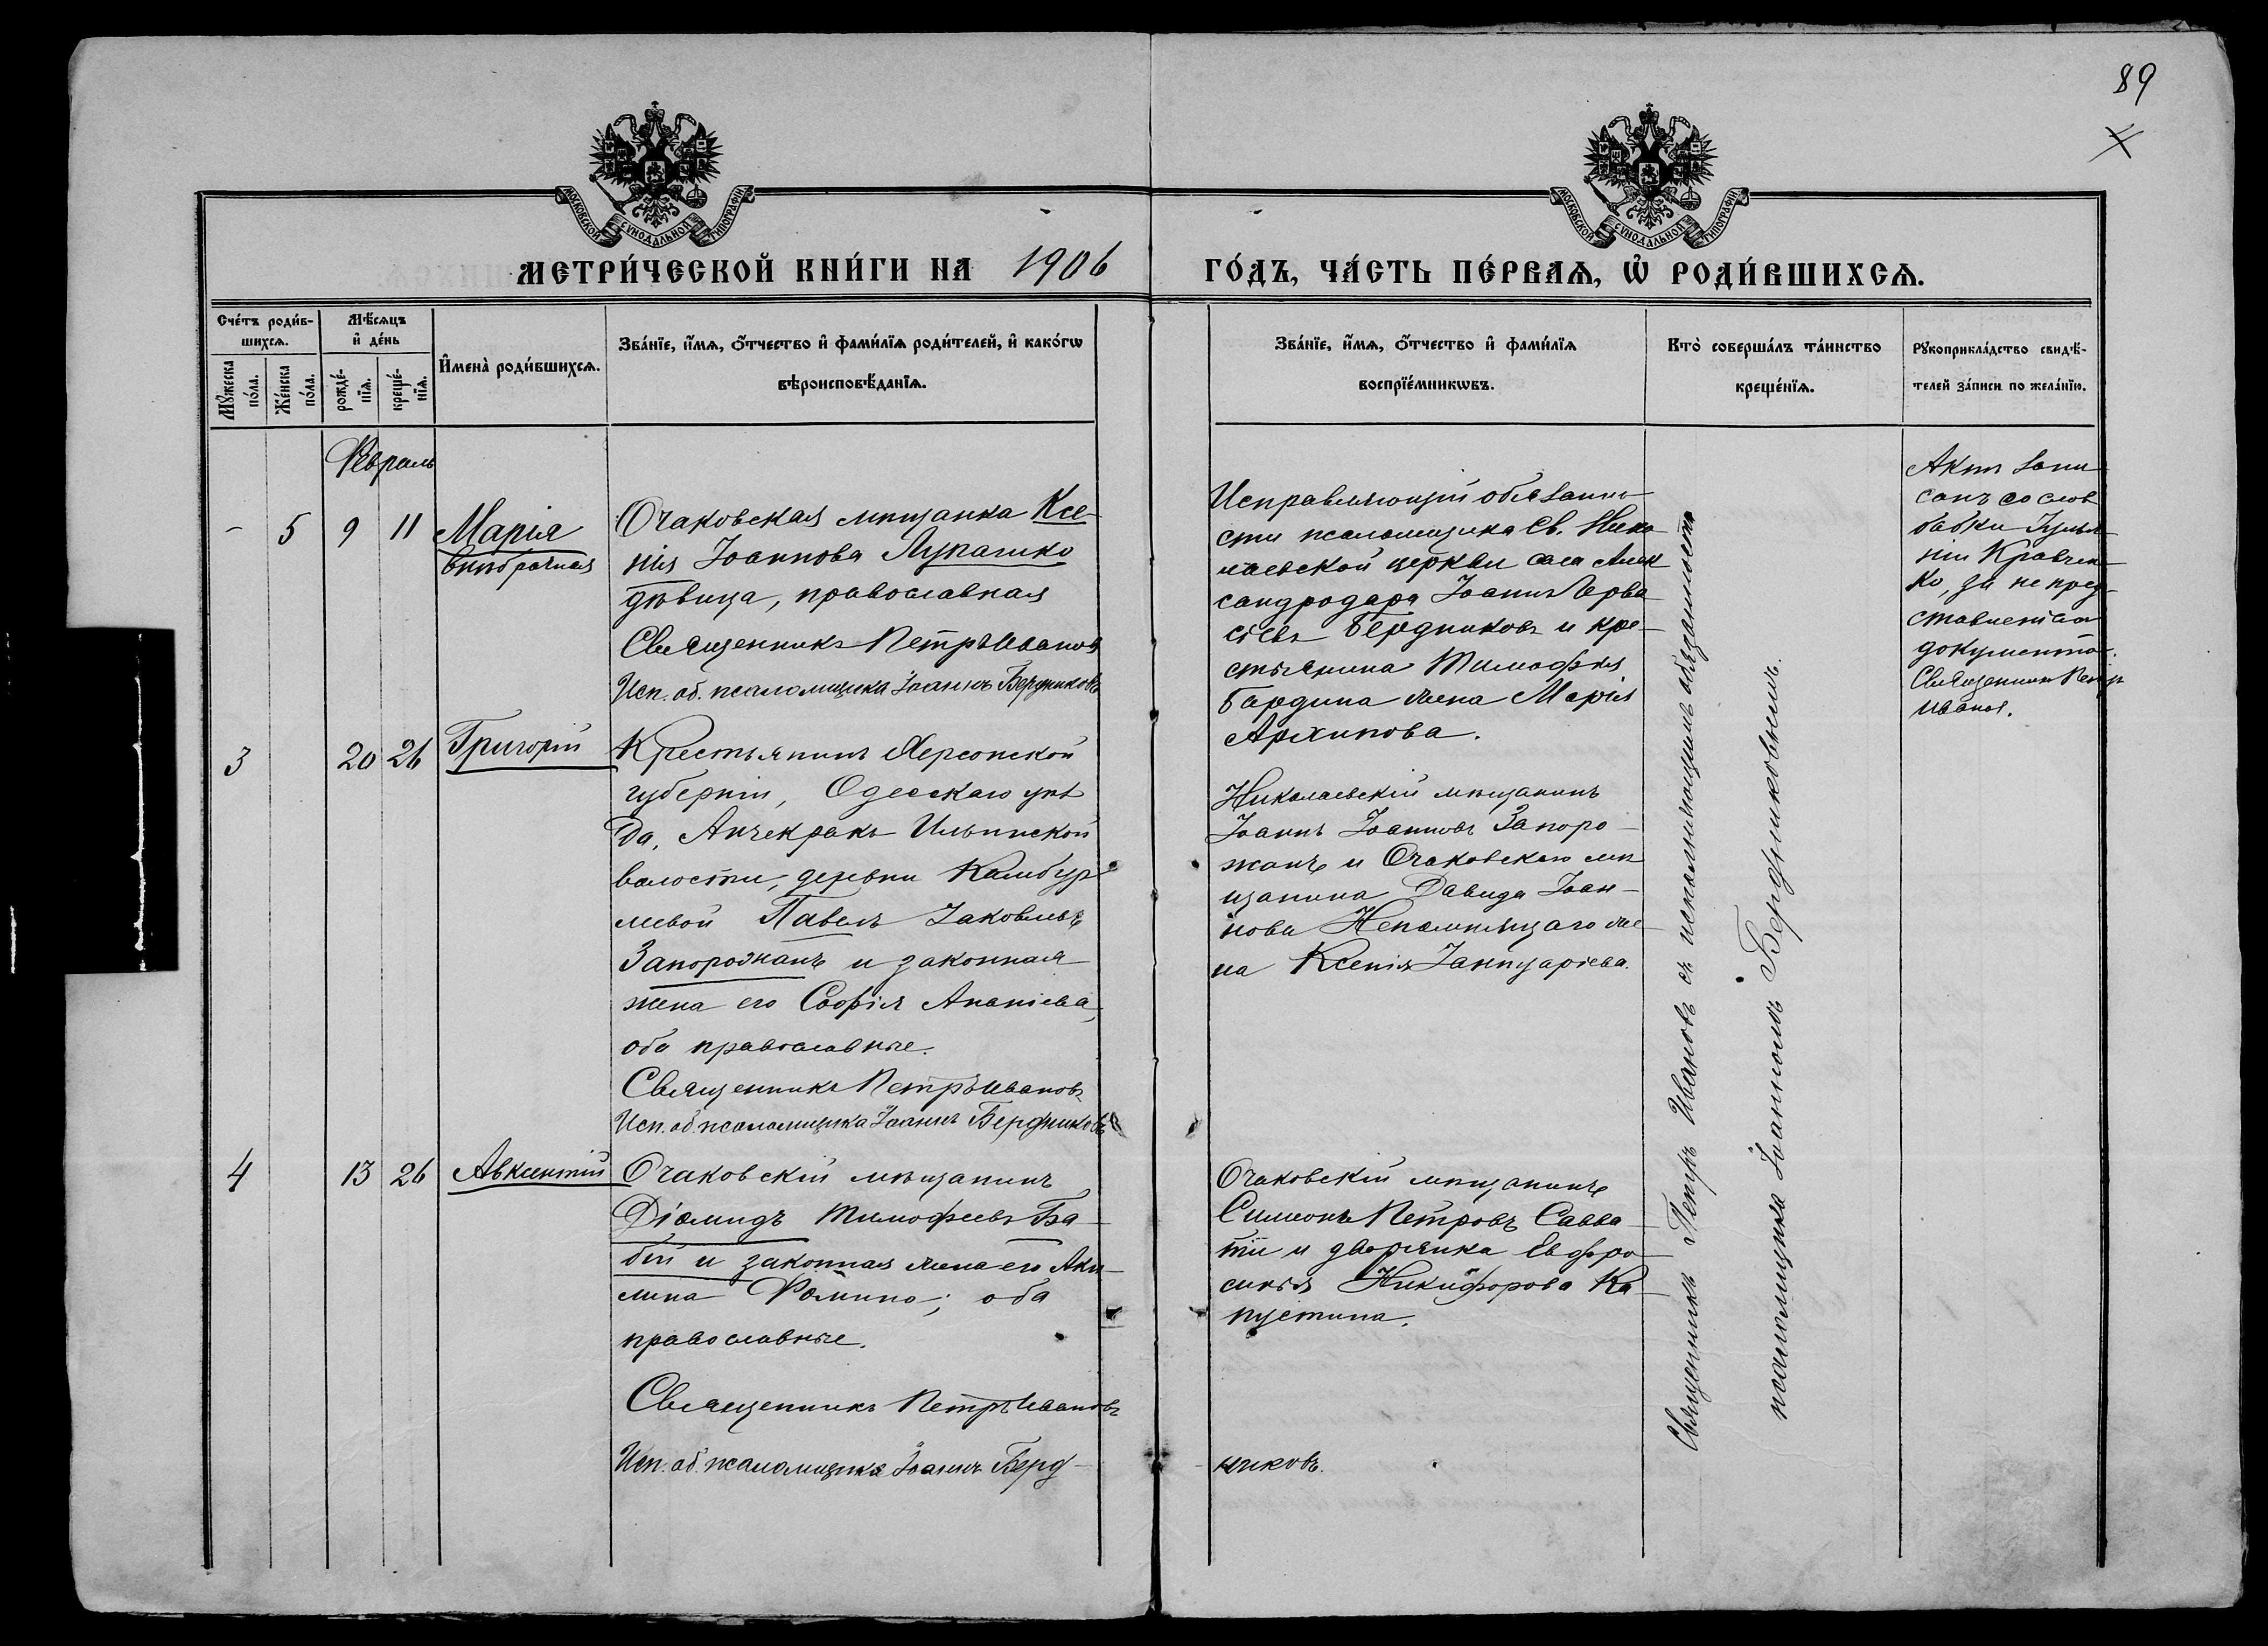 89
МОСКОВСКОЙ СУНОДАЛЬНОЙ ТИПОГРАФІИ
МОСКОВСКОЙ СУНОДАЛЬНОЙ ТИПОГРАФІИ
МЕТРИ́ЧЕСКОЙ КНИ́ГИ НА 1906 ГО́ДЪ, ЧА́СТЬ ПЕ́РВАѦ, Ѡ҆ РОДИ́ВШИХСѦ.
Сче́тъ роди́в-
шихсѧ.
Мꙋ́жеска
по́ла.
Же́нска
по́ла.
Мѣ́сѧцъ
и҆ де́нь
рожде́-
нїѧ.
креще́-
нїѧ.
И҆мена̀ роди́вшихсѧ.
Зва́нїе, и҆́мѧ, ѻ҆́тчество и҆ фами́лїѧ роди́телей, и҆ како́гѡ
вѣроисповѣ́данїѧ.
Зва́нїе, и҆́мѧ, ѻ҆́тчество и҆ фами́лїѧ
воспрїе́мникѡвъ.
Кто̀ соверша́лъ та́инство
креще́нїѧ.
Рꙋкоприкла́дство свидѣ́-
телей за́писи по жела́нїю.
Февраль
- 5 9 11 Марія
внѣбрачная
Очаковская мѣщанка Ксе-
нія Іоаннова Лупашко
дѣвица, православная
Священникъ Петръ Ивановъ
Исп. об. псаломщика Іоаннъ Бердниковъ
Исправляющій обязанно-
сти псаломщика Св. Нико-
лаевской церкви села Алек
сандродара Іоаннъ
Бердниковъ и кре-
стьянина Тимофея
Бардина жена Марія
Архипова.
Актъ запи
санъ со слов
бабки
Кравчен-
ко, за не пред-
ставленіем
документа.
Священникъ Петръ
Иванов.
3 20 26 Григорій
Крестьянинъ Херсонской
губерніи, Одесскаго уѣз
да, Анчекракъ Ильинской
волости, деревни Камбур
лѣевой Павелъ Іаковлевъ
Запорожанъ и законная
жена его Софія Ананіева,
оба православные.
Священникъ Петръ Ивановъ
Исп. об. псаломщика Іоаннъ Бердниковъ
Николаевскій мѣщанинъ
Іоаннъ Іоанновъ Запоро-
жанъ и Очаковскаго мѣ
щанина Давида Іоан-
нова Непомнящаго же-
на Ксенія Іаннуаріева.
4 13 26 Авксентій
Очаковскій мѣщанинъ
Діомидъ Тимофеевъ Ба-
бій и законная жена его Аки-
лина Фомина; оба
православные.
Священникъ Петръ Ивановъ
Исп. об. псаломщика Іоаннъ Берд-
никовъ.
Очаковскій мѣщанинъ
Симеонъ Петровъ Савва-
тій и дворянка Евфро
синія Никифорова Ка-
пустина.
Священникъ Петръ Ивановъ съ исполняющимъ обязанность
псаломщика Іоанномъ Бердниковымъ.